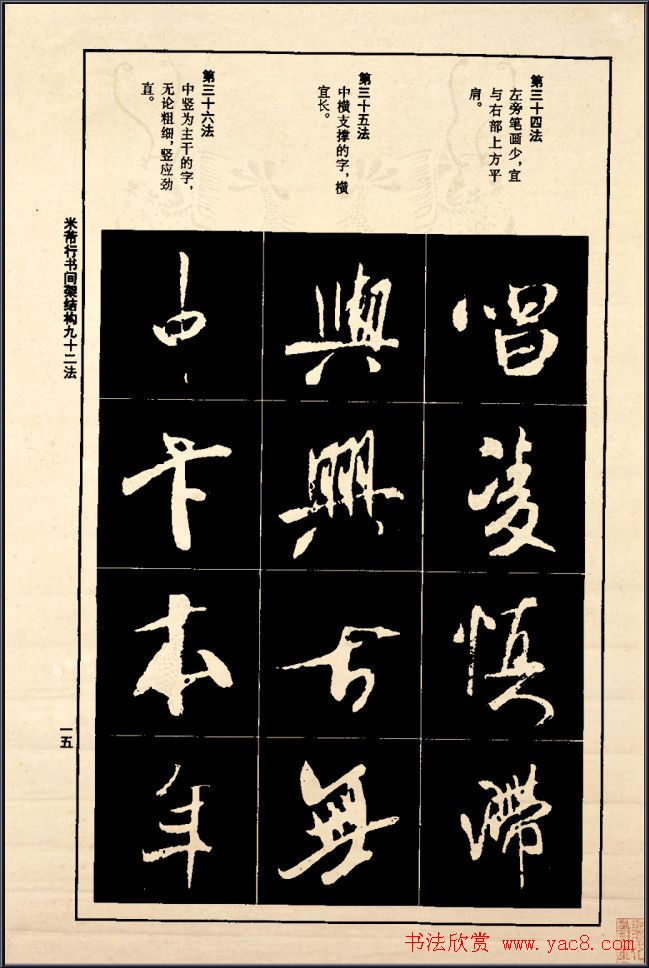 第三十四法
左旁笔画少，宜
与右部上方平
肩。
唱凌慎滯
第三十五法
中横支撑的字，横
宜长。
與興無
第三十六法
中竖为主干的字，
无论粗细，竖应劲
直。
中本年
米芾行书间架结构九十二法
一五
书法欣赏 www.yac8.com